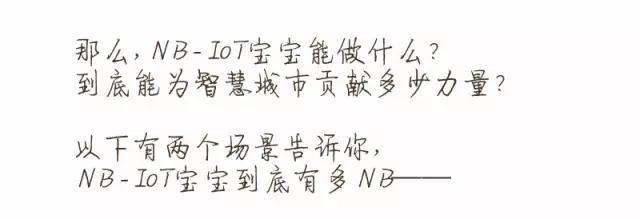 那么,NB-IoT宝宝能做什么?
到底能为智慧城市贡献多少力量?
以下有两个场景告诉你,
NB-IoT宝宝到底有多NB——